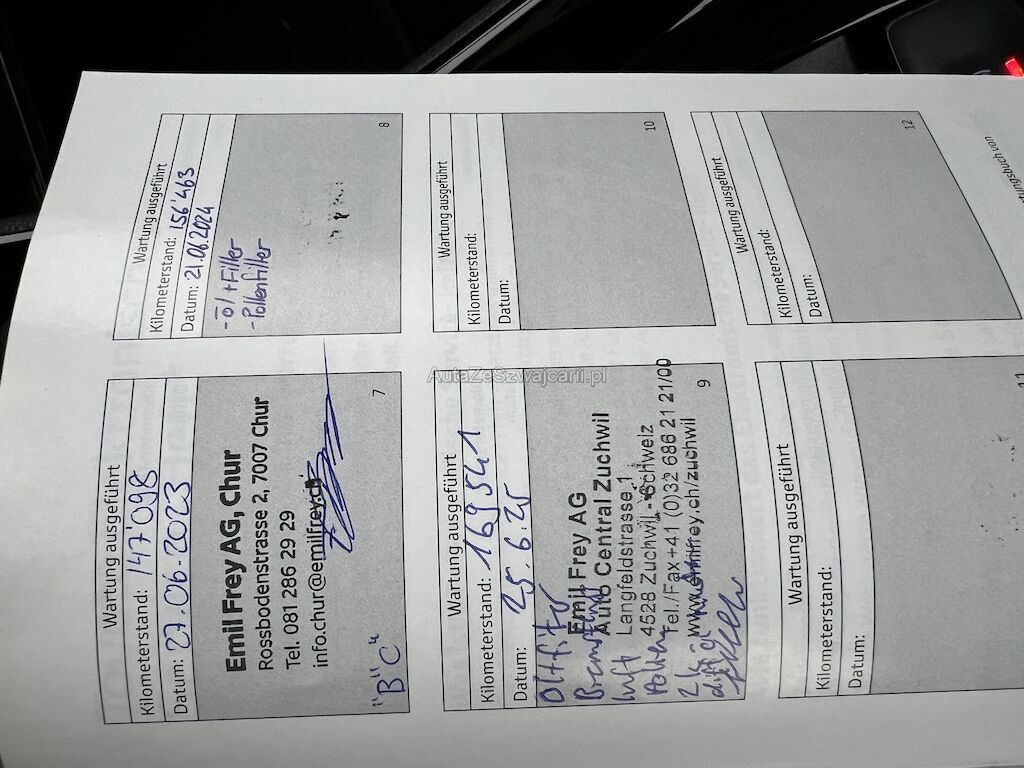 Wartung ausgeführt
Kilometerstand: 147'098
Datum: 27.06.2023
Emil Frey AG, Chur
Rossbodenstrasse 2, 7007 Chur
Tel. 081 286 29 29
info.chur@emilfrey.ch
"B" "C"
7
Wartung ausgeführt
Kilometerstand: 156'463
Datum: 21.06.2024
- Öl + Filter
- Pollenfilter
8
Wartung ausgeführt
Kilometerstand: 169541
Datum: 25.6.25
Emil Frey AG
Auto Central Zuchwil
Langfeldstrasse 1
4528 Zuchwil - Schweiz
Tel./Fax +41 (0)32 686 21 21/00
www.emilfrey.ch/zuchwil
Luft
Pollen
9
Wartung ausgeführt
Kilometerstand:
Datum:
10
Wartung ausgeführt
Kilometerstand:
Datum:
11
Wartung ausgeführt
Kilometerstand:
Datum:
12
AutaZeSzwajcarii.pl